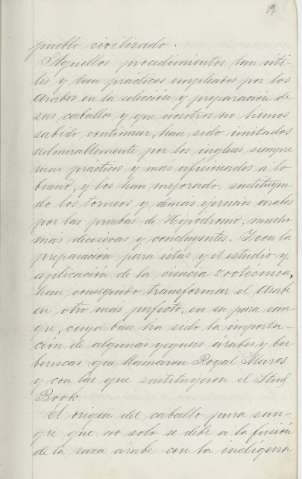 pueblo civilizado.
Aquellos procedimientos tan uti-
les y tan prácticos empleados por los
arabes en la elección y preparación de
sus caballos y que nosotros no hemos
sabido continuar, han sido imitados
admirablemente por los ingleses siempre
mas practicos y mas aficionados a lo
bueno, y los han mejorado, sustituyen
do los torneos y demas ejercicios arabes
por las pruebas de Hipodromo, mucho
mas decisivas y concluyentes. Y con la
preparacion para estas y el estudio y
aplicación de la ciencia zootecnica,
han conseguido transformar el Arabe
en otro mas perfecto, en su pura san-
gre, cuya base ha sido la importa-
ción de algunas yeguas arabes y ber
beriscas que llamaron Royal Mares
y con las que instituyeron el Stud
Book
El origen del caballo pura san-
gre que no solo se debe a la fusión
de la raza arabe con la indigena